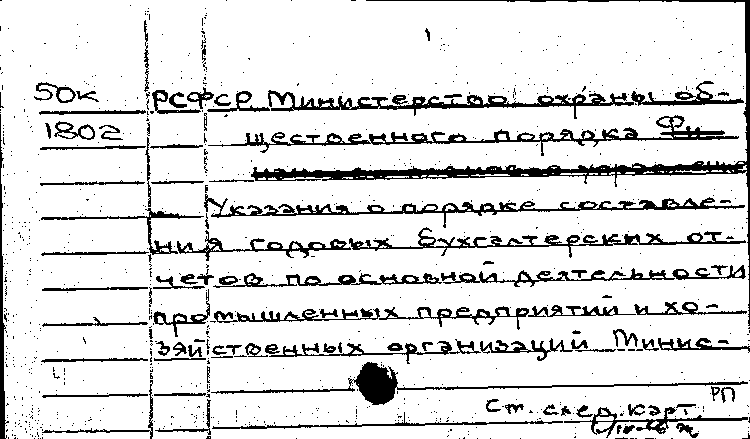 50к РСФСР Министерство охраны об-
1802 щественного порядка Фи-
нансово-плановое управление
Указания о порядке составле-
ния годовых бухгалтерских от-
четов по основной деятельности
промышленных предприятий и хо-
зяйственных организаций Минис-
РП
См. след. карт.